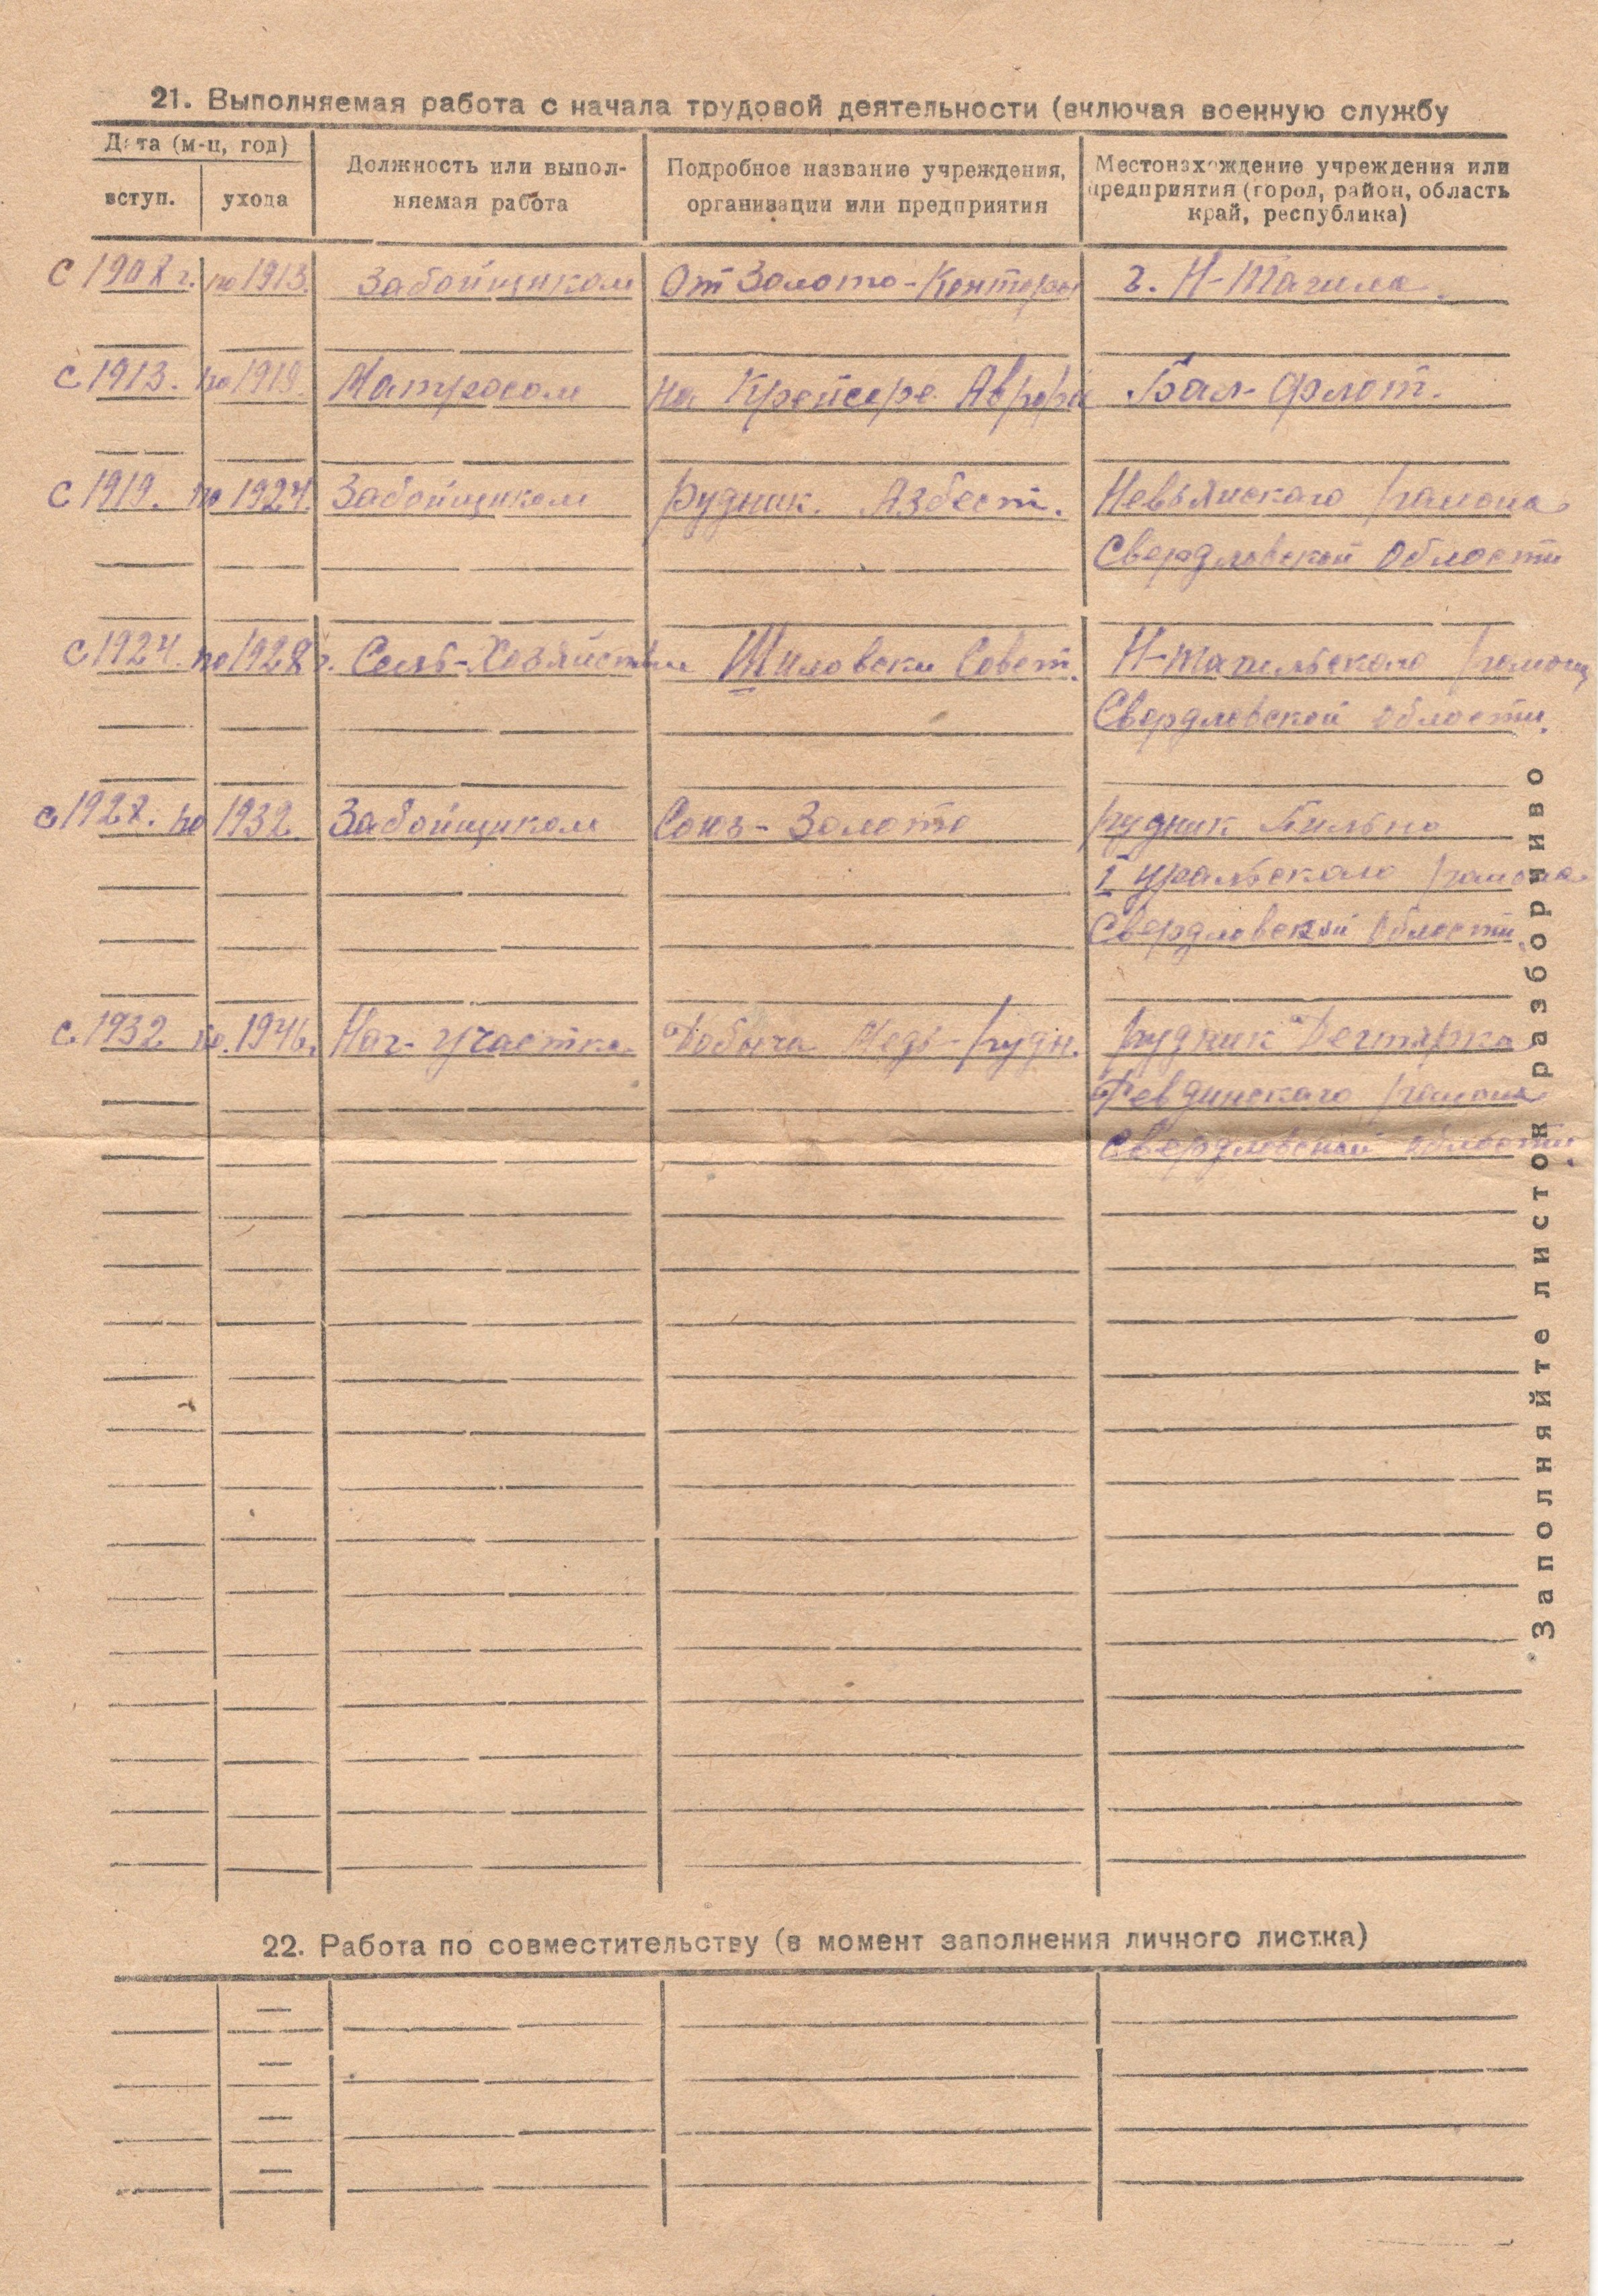 21. Выполняемая работа с начала трудовой деятельности (включая военную службу
Дата (м-ц, год)
вступ. ухода
Должность или выпол-
няемая работа
Подробное название учреждения,
организации или предприятия
Местонахождение учреждения или
предприятия (город, район, область
край, республика)
С 1908 г. по 1913. Забойщиком От Золото-Конторы г. Н-Тагила.
С 1913. по 1919. Матросом на Крейсере Аврора Бал-Флот.
С 1919. по 1924. Забойщиком рудник. Азбест. Невьянскаго района
Свердловской Области
С 1924. по 1928 г. Сель-Хозяйство Шиловски Совет. Н-Тагильского района
Свердловской области.
с 1928. по 1932 Забойщиком Союз-Золото рудник
I Уральского района
Свердловской Области.
с. 1932 по. 1946. Нач-участка Добыча Медь-рудн. рудник Дегтярка
Ревдинскаго района
Свердловской области.
Заполняйте листок разборчиво
22. Работа по совместительству (в момент заполнения личного листка)
—
—
—
—